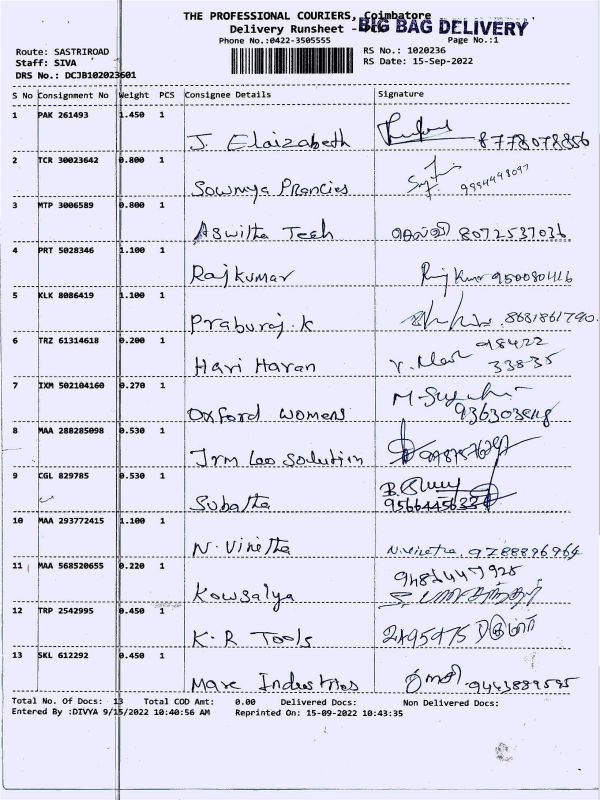 THE PROFESSIONAL COURIERS, Coimbatore
Delivery Runsheet - DTC
BIG BAG DELIVERY
Phone No.:0422-3505555
Page No.:1
Route: SASTRIROAD
RS No.: 1020236
Staff: SIVA
RS Date: 15-Sep-2022
DRS No.: DCJB102023601
S No Consignment No Weight PCS Consignee Details Signature
1 PAK 261493 1.450 1
J. Elaizabeth 8778078856
2 TCR 30023642 0.800 1
Sowmya Prancies 9994448097
3 MTP 3006589 0.800 1
Aswitha Tech 8072537036
4 PRT 5028346 1.100 1
Rajkumar Raj Kumar 950080416
5 KLK 8086419 1.100 1
Praburaj. K 8681861790
6 TRZ 61314618 0.200 1
98422
Hari Haran 33835
7 IXM 502104160 0.270 1
Oxford womens
8 MAA 288285098 0.530 1
9 CGL 829785 0.530 1
Subatha 9566445633
10 MAA 293772415 1.100 1
N. Vinetha N. Vinetha. 9788896964
11 MAA 568520655 0.220 1
9487447925
Kowsalya
12 TRP 2542995 0.450 1
K. R Tools
13 SKL 612292 0.450 1
Marc Industries 9443889595
Total No. Of Docs: 13 Total COD Amt: 0.00 Delivered Docs: Non Delivered Docs:
Entered By :DIVYA 9/15/2022 10:40:56 AM Reprinted On: 15-09-2022 10:43:35